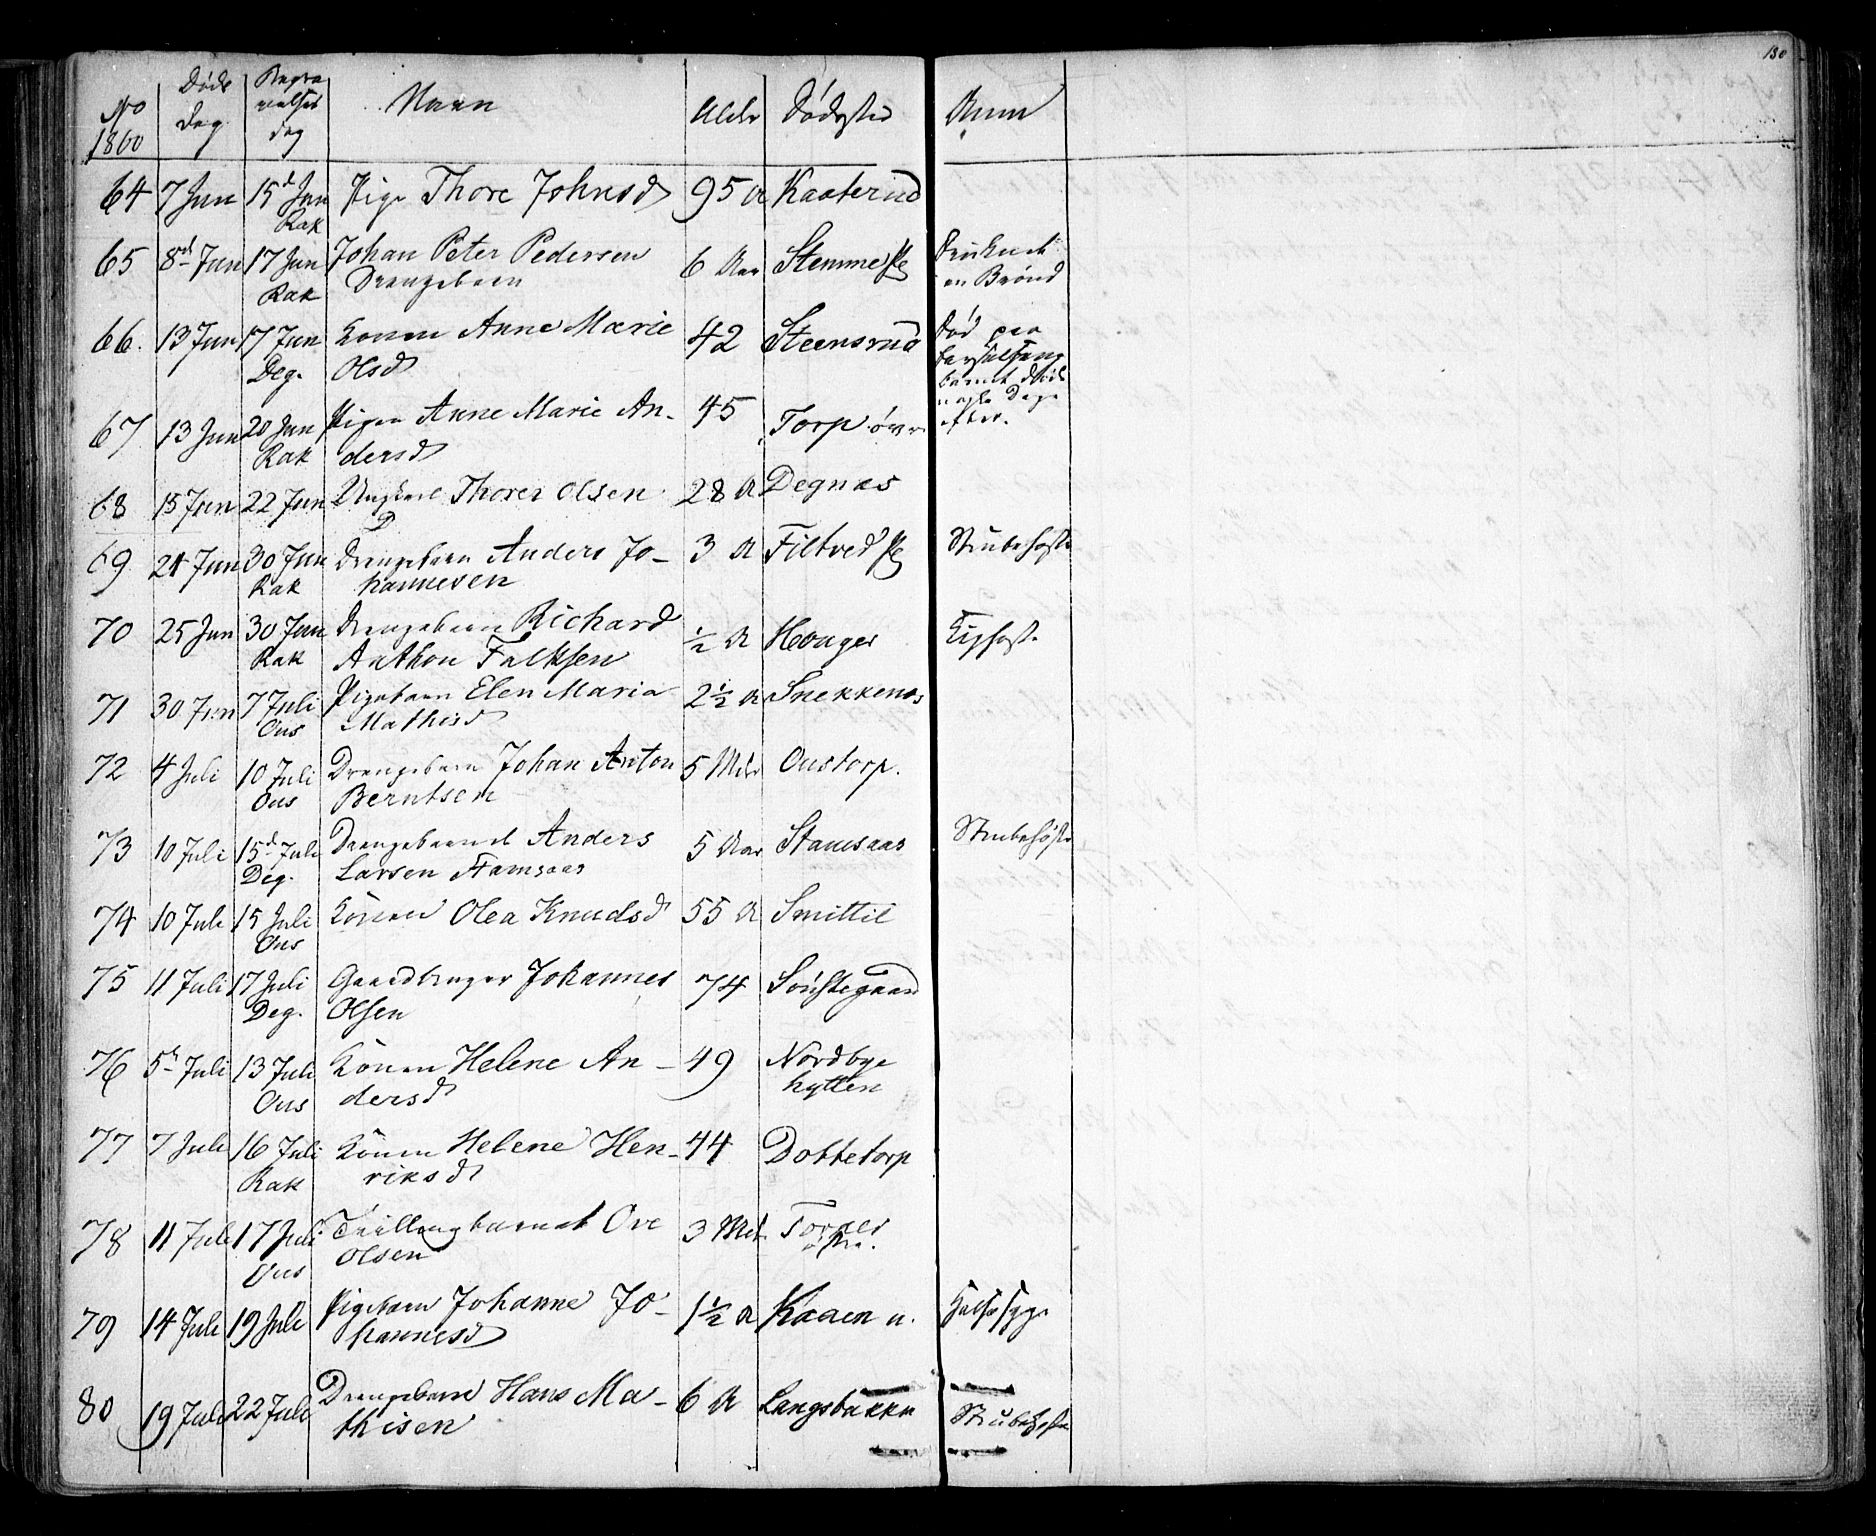 130
No 1860 Døds Dag Begravelses dag Navn Alder Dødssted Anm
64 7 Jun 15d Jun Pige Thore Johnsd 95 A Kaaterud
Rak
65 8d Jun 17 Jun Johan Peter Pedersen 6 Aar Stemme Pl Druknet
Rak Drengebarn en Brønd
66. 13 Jun 17 Jun Konen Anne Marie 42 Steensrud Død paa
Deg. Olsd Barselseng
barnet døde
nogle Dage
67 13 Jun 20 Jun Pigen Anne Marie An- 45 Torp øvre efter.
Rak dersd
68 15 Jun 22 Jun Ungkarl Thorer Olsen 28 A Degnæs
69 21 Jun 30 Jun Drengebarn Anders Jo- 3 A Filtved Pl Strubehoste
Rak hannesen
70 25 Jun 30 Jun Drengebarn Richard ½ A Hvager Kighoste
Rak Anthon Falksen
71 30 Jun 7 Juli Pigebarn Elen Maria 2½ A Snekkenæs
Ous Mathisd
72 4 Juli 10 Juli Drengebarn Johan Anton 5 Mdr Oustorp.
Ous Berntsen
73 10 Juli 15d Juli Drengebarnet Anders 5 Aar Stamsaas Strubehoste
Deg. Larsen Stamsaas
74 10 Juli 15 Juli Konen Olea Knudsd 55 A Smittil
Ous
75 11 Juli 17 Juli Gaardbruger Johannes 74 Sønstegaard
Deg. Olsen
76 5te Juli 13 Juli Konen Helene An- 49 Nordbye
Ous dersd hytten
77 7 Juli 16 Juli Konen Helene Hen- 44 Dottetorp
Rak riksd
78 11 Juli 17 Juli Tvillingbarnet Ove 3 Mdr Torper
Ous Olsen østre.
79 14 Juli 19 Juli Pigebarn Johanne Jo- 1½ A Kaaen n. Halssyge
hannesd
80 19 Juli 22 Juli Drengebarn Hans Ma- 6 A Langebakke Strubehoste
thisen